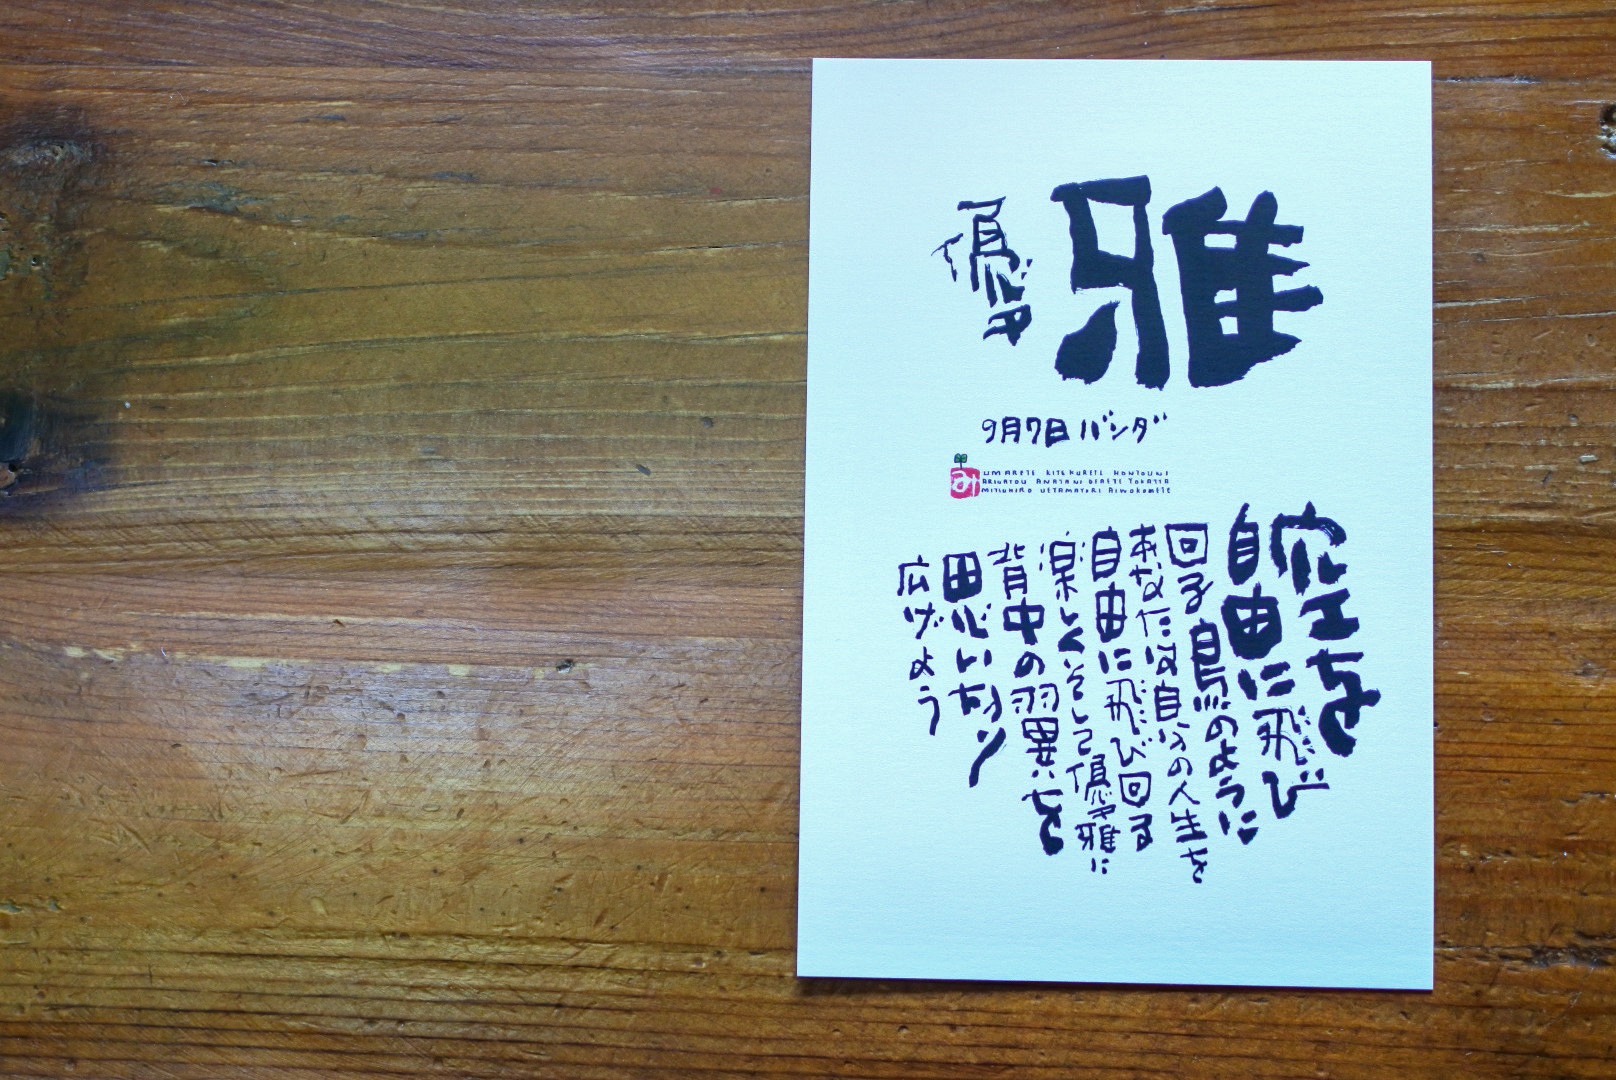 優雅
9月7日 バンダ
み
UMARETE KITEKURETE HONTOUNI
ARIGATOU ANATANI DEAETE YOKATTA
MITIUHIRO UETAMATORI AIWOKOMETE
空を
自由に飛び
回る鳥のように
あなたは自分の人生を
自由に飛び回る
楽しくそして優雅に
背中の羽翼を
思い切り
広げよう